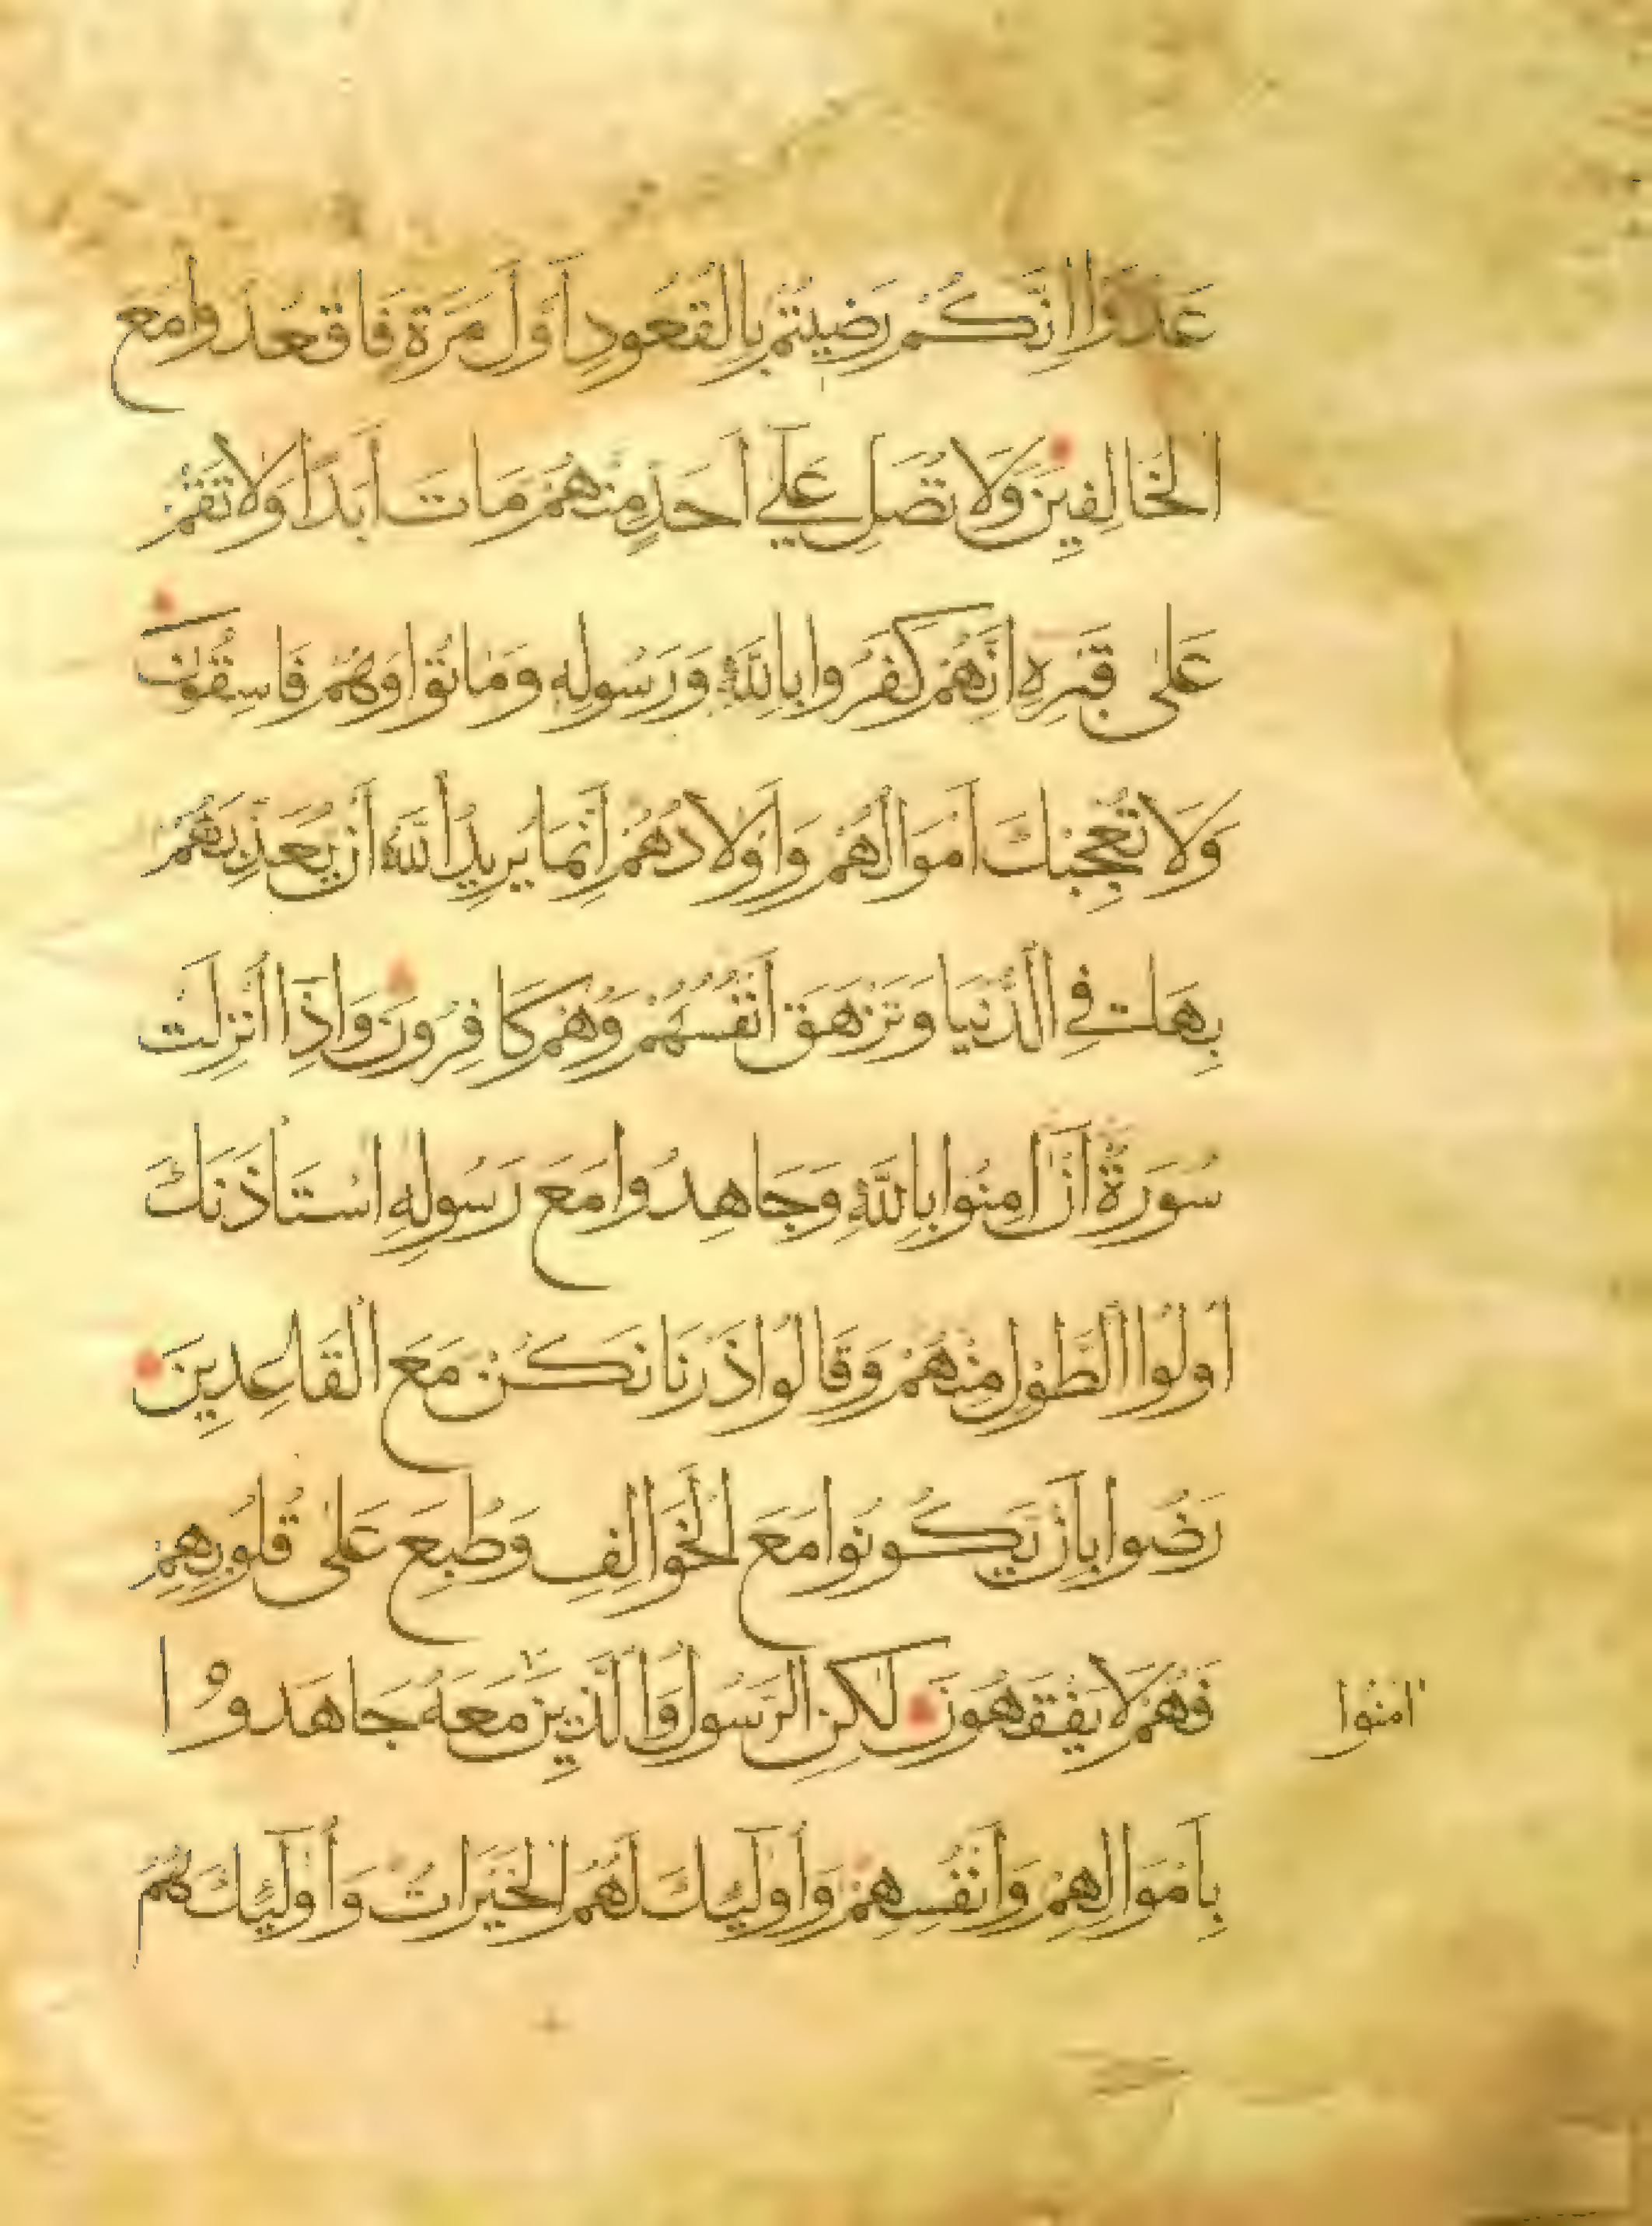 عَدُوًّا إِنَّكُمْ رَضِيتُمْ بِالْقُعُودِ أَوَّلَ مَرَّةٍ فَاقْعُدُوا مَعَ
الْخَالِفِينَ وَلَا تُصَلِّ عَلَىٰ أَحَدٍ مِنْهُمْ مَاتَ أَبَدًا وَلَا تَقُمْ
عَلَىٰ قَبْرِهِ إِنَّهُمْ كَفَرُوا بِاللَّهِ وَرَسُولِهِ وَمَاتُوا وَهُمْ فَاسِقُونَ
وَلَا تُعْجِبْكَ أَمْوَالُهُمْ وَأَوْلَادُهُمْ إِنَّمَا يُرِيدُ اللَّهُ أَنْ يُعَذِّبَهُمْ
بِهَا فِي الدُّنْيَا وَتَزْهَقَ أَنْفُسُهُمْ وَهُمْ كَافِرُونَ وَإِذَا أُنْزِلَتْ
سُورَةٌ أَنْ آمِنُوا بِاللَّهِ وَجَاهِدُوا مَعَ رَسُولِهِ اسْتَأْذَنَكَ
أُولُوا الطَّوْلِ مِنْهُمْ وَقَالُوا ذَرْنَا نَكُنْ مَعَ الْقَاعِدِينَ
رَضُوا بِأَنْ يَكُونُوا مَعَ الْخَوَالِفِ وَطُبِعَ عَلَىٰ قُلُوبِهِمْ
فَهُمْ لَا يَفْقَهُونَ لَٰكِنِ الرَّسُولُ وَالَّذِينَ مَعَهُ جَاهَدُوا
امَنُوا
بِأَمْوَالِهِمْ وَأَنْفُسِهِمْ وَأُولَٰئِكَ لَهُمُ الْخَيْرَاتُ وَأُولَٰئِكَ هُمُ